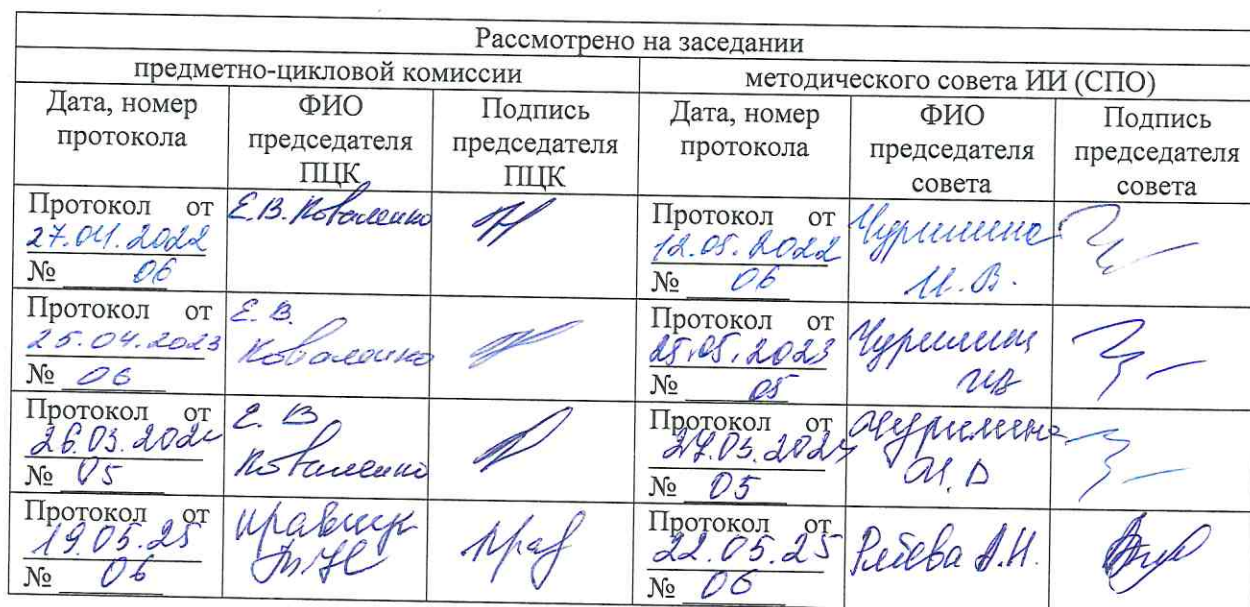 Рассмотрено на заседании
предметно-цикловой комиссии методического совета ИИ (СПО)
Дата, номер протокола
ФИО председателя ПЦК
Подпись председателя ПЦК
Дата, номер протокола
ФИО председателя совета
Подпись председателя совета
Протокол от
27.04.2022
№ 06
Е.В. Коваленко
Протокол от
12.05.2022
№ 06
Чурилина
И.В.
Протокол от
25.04.2023
№ 06
Е.В.
Коваленко
Протокол от
25.05.2023
№ 05
Чурилина
ИВ
Протокол от
26.03.202
№ 05
Е.В
Коваленко
Протокол от
2024
№ 05
Чурилина
И.В
Протокол от
19.05.25
№ 06
Протокол от
22.05.25
№ 06
А.Н.